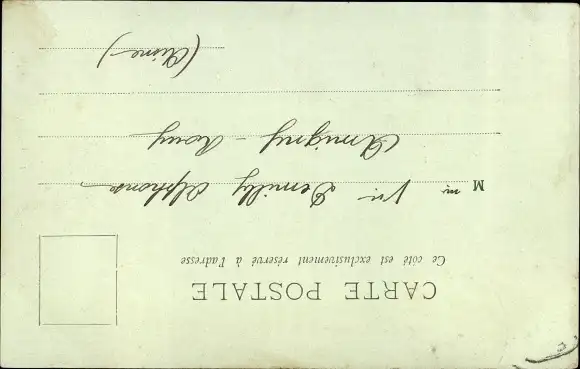 CARTE POSTALE
Ce côté est exclusivement réservé à l'adresse
M Demilly Alphonse
Amigny-Rouy
(Aisne)